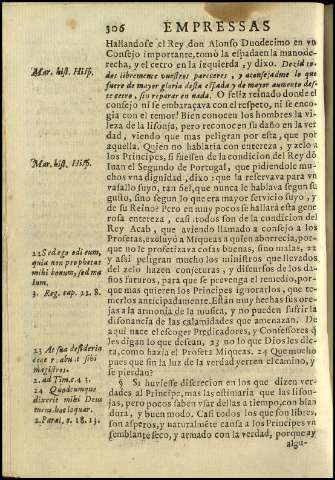 306 EMPRESSAS
Hallandose el Rey don Alonso Duodecimo en vn
Consejo importante, tomò la espada en la mano de-
recha, y el cetro en la izquierda, y dixo. Dezid to-
dos libremente vuestros pareceres, y aconsejadme lo que
fuere de mayor gloria desta espada, y de mayor aumento des-
te cetro, sin reparar en nada. O feliz reinado donde el
Consejo ni se embaraçava con el respeto, ni se enco-
gia con el temor! Bien conocen los hombres la vi-
leza de la lisonja, pero reconocen su daño en la ver
dad, viendo que mas peligran por esta, que por
aquella. Quien no hablaria con entereza, y zelo a
los Principes, si fuessen de la condicion del Rey dō
Iuan el Segundo de Portugal, que pidiendole mu-
chos vna dignidad, dixo: que la reservava para vn
vasallo suyo, tan fiel, que nunca le hablava segun su
gusto, sino segun lo que era mayor servicio suyo, y
de su Reino? Pero en muy pocos se hallarà esta gene
rosa entereza, casi todos son de la condicion del
Rey Acab, que aviendo llamado a consejo a los
Profetas, excluyò a Miqueas a quien aborrecia, por-
que no le profetizava cosas buenas, sino malas, 22
y assi peligran mucho los ministros que llevados
del zelo hazen conjeturas, y discursos de los da-
ños futuros, para que se prevenga el remedio, por-
que mas quieren los Principes ignorarlos, que te-
merlos anticipadamente. Están muy hechas sus ore-
jas a la armonia de la musica, y no pueden sufrir la
disonancia de las calamidades que amenazan. De
aqui nace el escoger Predicadores, y Confessores q̃
les digan lo que desean, 23 no lo que Dios les dic-
ta, como hazia el Profeta Miqueas. 24 Que mucho
pues que sin la luz de la verdad yerren el camino, y
se pierdan?
§ Si huviesse discrecion en los que dizen ver-
dades al Principe, mas las estimaria que las lison-
jas, pero pocos saben vsar dellas a tiempo, con blan
dura, y buen modo. Casi todos los que son libres,
son asperos, y naturalmēte cansa a los Principes vn
semblante seco, y armado con la verdad, porque ay
algu-
Mar. hist. Hisp.
Mar. hist. Hisp.
22 Sed ego odi eum,
quia non prophetat
mihi bonum, sed ma
lum.
3. Reg. cap. 22. 8.
23 At sua desideria
coacervabunt sibi
magistros.
2. ad Tim. c. 4 3.
24 Quodcumque
dixerit mihi Deus
meus, hoc loquar.
2. Paral. c. 18. 13.